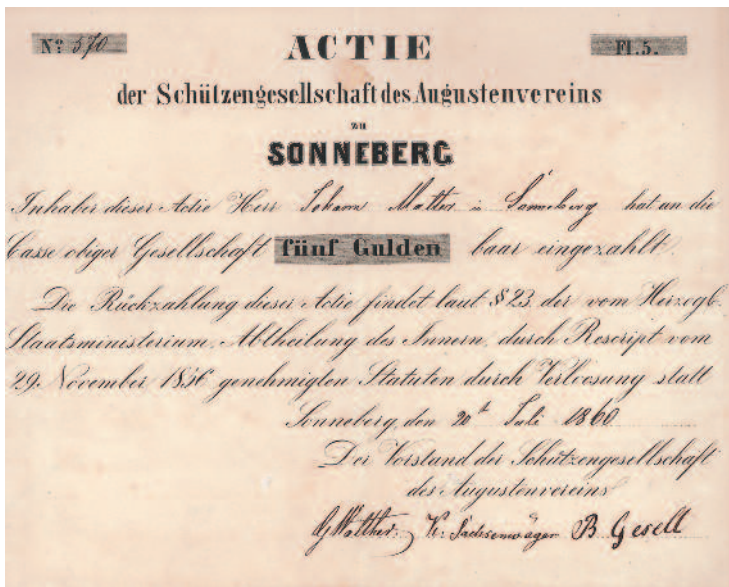 No 570 ACTIE Fl.5.
der Schützengesellschaft des Augustenvereins
zu
SONNEBERG
Inhaber dieser Actie Herr Johann Matter in Sonneberg hat an die
Casse obiger Gesellschaft fünf Gulden baar eingezahlt.
Die Rückzahlung dieser Actie findet laut § 23 der vom Herzogl.
Staatsministerium, Abtheilung des Innern, durch Rescript vom
29. November 1856 genehmigten Statuten durch Verloosung statt
Sonneberg, den 20t Juli 1860
Der Vorstand der Schützengesellschaft
des Augustenvereins
G Walther. Sachsenwäger B. Gesell